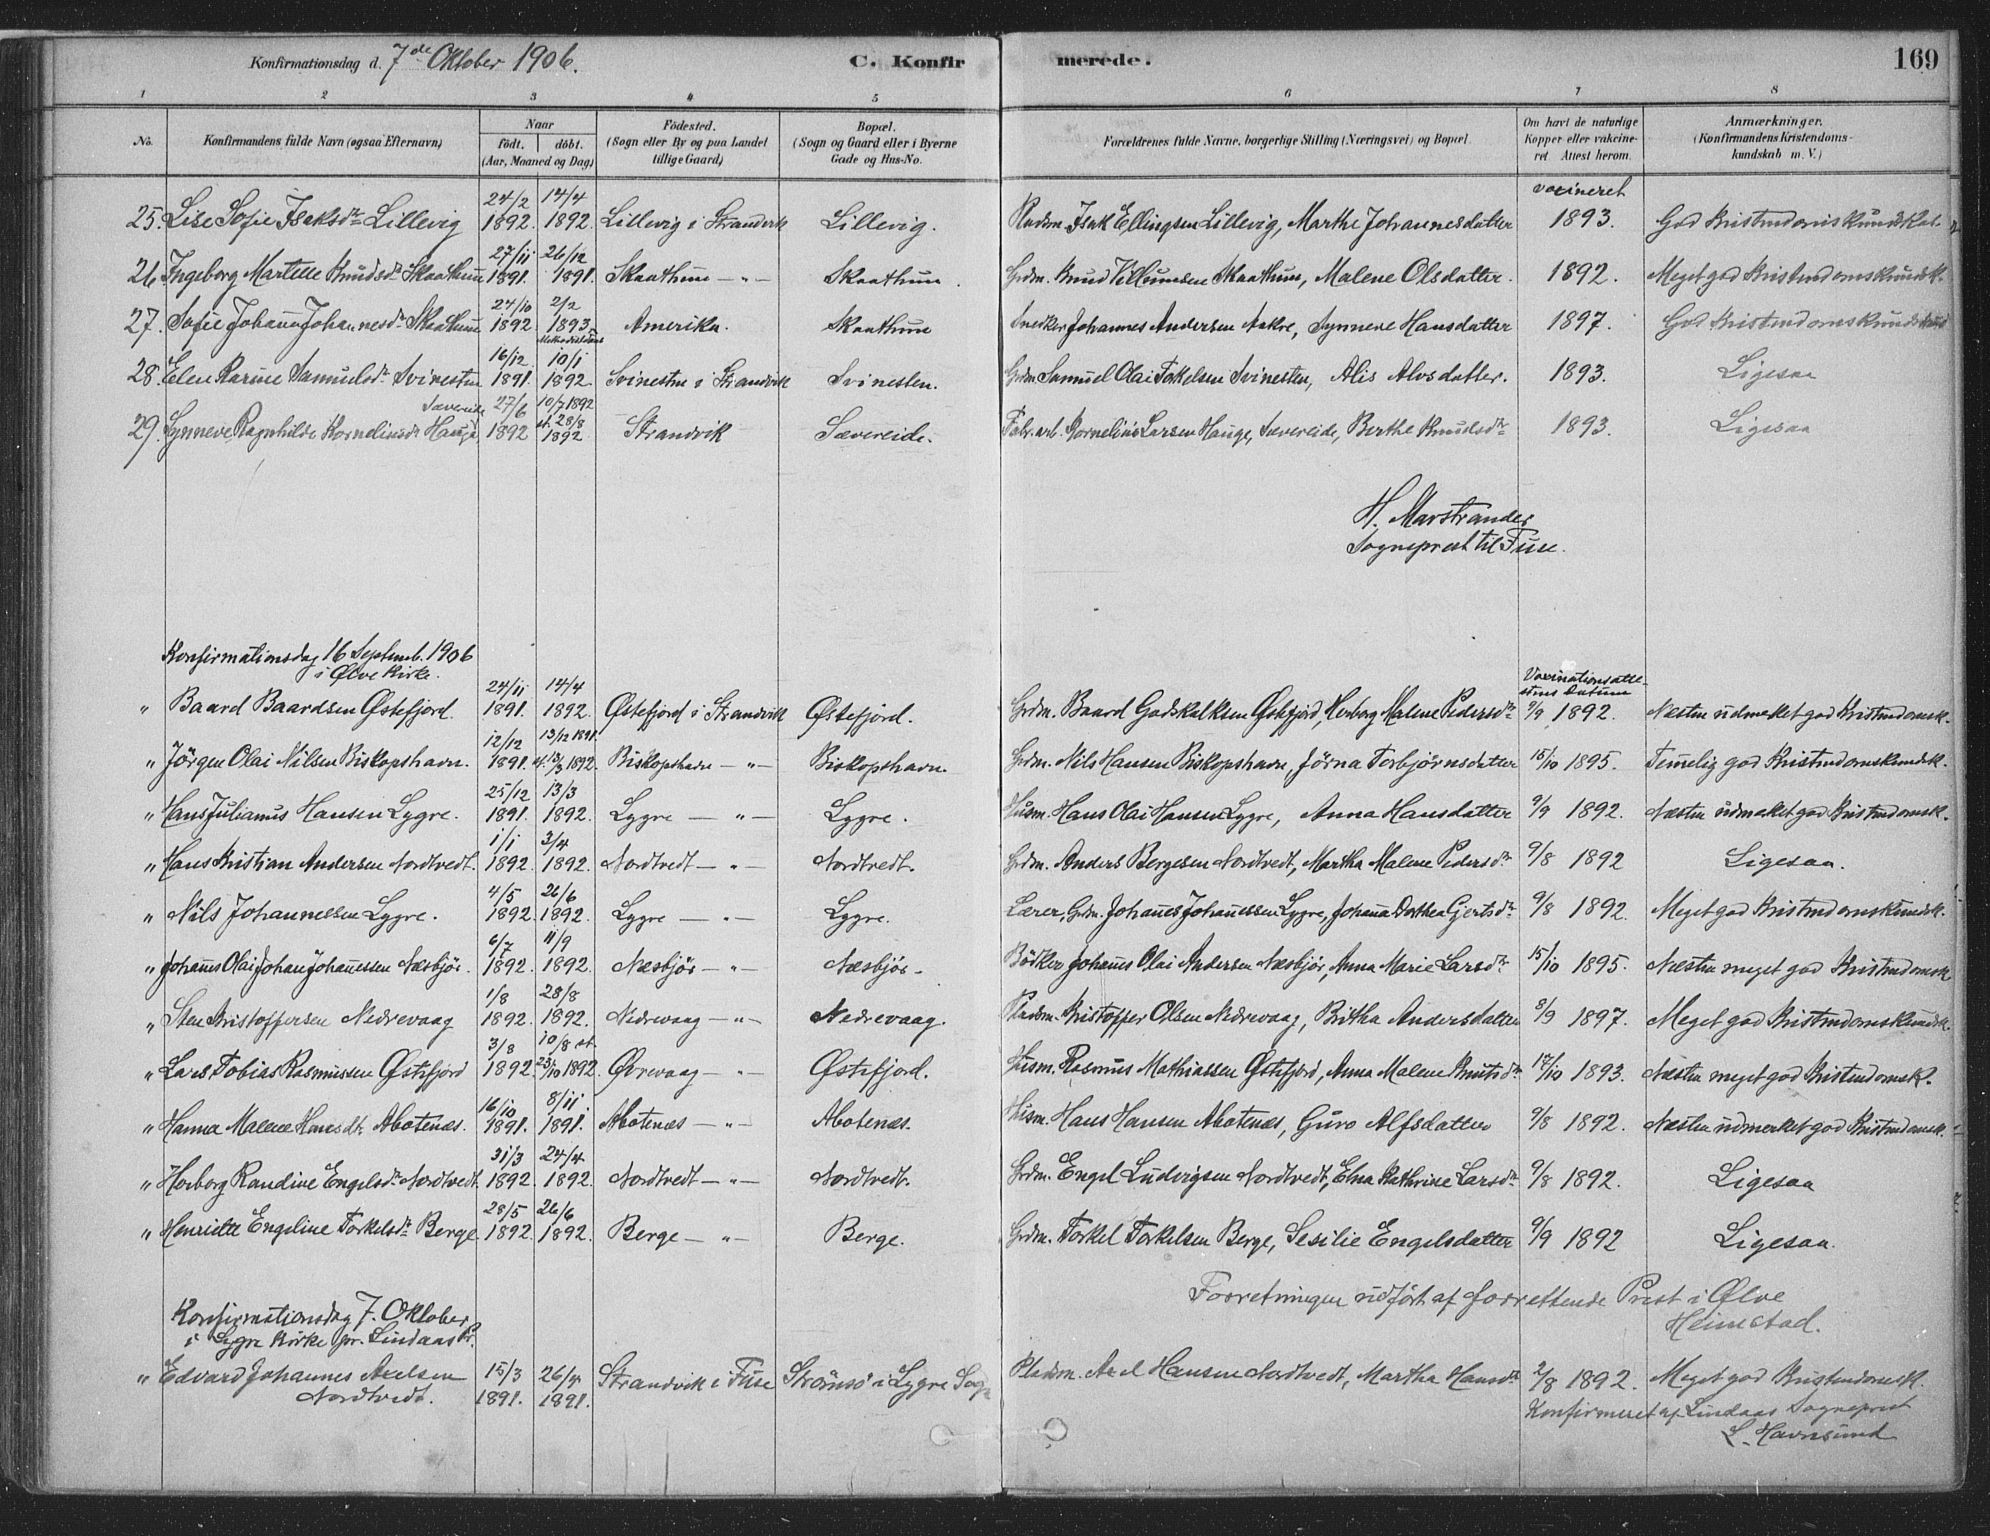 Konfirmationsdag d. 7de Oktober 1906. C. Konfirmerede. 169
1 2 3 4 5 6 7 8
No. Konfirmandens fulde Navn (ogsaa Efternavn) Naar födt. döbt. (Aar, Maaned og Dag) Födested. (Sogn eller By og paa Landet tillige Gaard) Bopæl. (Sogn og Gaard eller i Byerne Gade og Hus-No. Forældrenes fulde Navne, borgerlige Stilling (Næringsvei) og Bopæl. Om havt de naturlige Kopper eller vakcineret. Attest herom. Anmærkninger. (Konfirmandens Kristendomskundskab m. V.)
25. Lise Sofie Isaksdtr Lillevig 24/2 1892. 14/4 1892. Lillevig i Strandvik Lillevig. Pladsm. Isak Ellingsen Lillevig, Marthe Johannesdatter vacineret 1893. God Kristendomskundskab.
26. Ingeborg Martelle Knudsdtr Skaathun 27/11 1891. 26/12 1891. Skaathun - " - Skaathun. Grdm. Knud Villumsen Skaathun, Malene Olsdatter. 1892. Meget god Kristendomskundsk.
27. Sofie Johana Johannesdtr Skaathun 24/10 1892. 2/2 1893. Amerika. Skaathun Snedker Johannes Andersen Aakre, Synneve Hansdatter 1897. God Kristendomskundskab
28. Elen Karine Samuelsdtr Svinesten 16/12 1891. 10/1 1892. Svinesten i Strandvik Svinesten. Grdm Samuel Olai Torkelsen Svinesten, Alis Alvsdatter. 1893. Ligesaa
29. Synneve Ragnhilde Kornelinsdtr Hauge Sævereide 27/6 1892 10/7 1892 st. 28/8 1892. Strandvik Sævereide. Fabr.arb. Kornelius Larsen Hauge, Sævereide, Berthe Knudsdtr 1893. Ligesaa
H. Marstrander
Sogneprest til Fuse.
Konfirmationsdag 16 Septemb. 1906
i Ølve Kirke.
Vaccinationsattestens Datum
" Baard Baardsen Østefjord. 24/11 1891. 14/4 1892. Østefjord i Strandvik Østefjord. Grdm. Baard Godskalksen Østefjord, Herborg Malene Pedersdtr 9/9 1892. Næsten udmerket god Kristendomsk.
" Jörgen Olai Nilsen Biskopshavn. 12/12 1891. 13/12 1891. st. 13/3 1892. Biskopshavn - " - Biskopshavn. Grdm. Nils Hansen Biskopshavn, Jörna Torbjørnsdatter 15/10 1895. Temmelig god Kristendomskundsk.
" Hans Julianus Hansen Lygre. 25/12 1891. 13/3 1892. Lygre - " - Lygre. Husm. Hans Olai Hansen Lygre, Anna Hansdatter 9/9 1892. Næsten udmerket god Kristendomsk.
" Hans Kristian Andersen Nordtvedt. 1/1 1892. 3/4 1892. Nordtvedt - " - Nordtvedt. Grdm. Anders Bergesen Nordtvedt, Martha Malene Pedersdtr 9/8 1892 Ligesaa.
" Nils Johannessen Lygre. 4/5 1892. 26/6 1892. Lygre - " - Lygre. Lærer, Grdm. Johanes Johanessen Lygre, Johana Dorthea Gjertsdtr 9/8 1892. Meget god Kristendomskundsk.
" Johanes Olai Johan Johanessen Næsbjör. 6/7 1892. 11/9 1892. Næsbjör - " - Næsbjör. Bödker Johanes Olai Andersen Næsbjör, Anna Marie Larsdtr 15/10 1895. Næsten meget god Kristendomsk.
" Sten Kristoffersen Nedrevaag 1/8 1892. 28/8 1892. Nedrevaag - " - Nedrevaag. Pladsm. Kristoffer Olsen Nedrevaag, Britha Andersdatter 8/9 1897. Meget god Kristendomskundsk.
" Lars Tobias Rasmussen Østefjord 3/8 1892. 10/8 st. 23/10 1892. Øvrevaag - " - Østefjord. Husm. Rasmus Mathiassen Østefjord, Anna Malene Knutsdtr 17/10 1893. Næsten meget god Kristendomsk.
" Hanna Malene Hansdt. Abotenæs. 16/10 1891. 8/11. 1891. Abotenæs - " - Abotenæs. Husm. Hans Hansen Abotenæs, Guro Alfsdatter 9/8 1892. Næsten udmerket god Kristendomsk.
" Herborg Randine Engelsdtr Nordtvedt. 31/3 1892. 24/4 1892. Nordtvedt - " - Nordtvedt. Grdm. Engel Ludvigsen Nordtvedt, Elna Kathrine Larsdtr 9/8 1892. Ligesaa
" Henriette Engeline Torkelsdtr Berge. 28/5 1892. 26/6 1892. Berge - " - Berge. Grdm. Torkel Torkelsen Berge, Sesilie Engelsdatter 9/9 1892 Ligesaa.
Forretningen udført af forrettende Prest i Ølve
Heimstad.
Konfirmationsdag 7. Oktober
i Lygre Kirke pr. Lindaas Pr.
" Edvard Johannes Axelsen Nordtvedt. 15/3 1891. 26/4 1891. Strandvik i Fuse Strömsø i Lygre Sogn Pladsm. Axel Hansen Nordtvedt, Martha Hansdtr 2/8 1892. Meget god Kristendomsk.
Konfirmeret af Lindaas Sogneprest
L. Havnsund